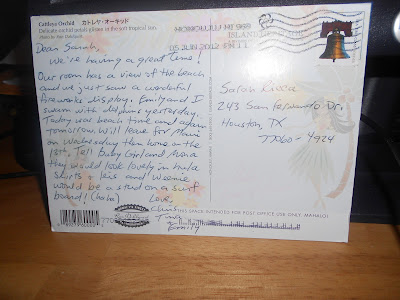 Cattleya Orchid カトレヤ・オーキッド
Delicate orchid petals glisten in the soft tropical sun.
HONOLULU HI 968
ISLAND
05 JUN 2012 PM 1 T
Dear Sarah,
We're having a great time!
Our room has a view of the beach
and we just saw a wonderful
fireworks display. Emily and I
swam with dolphins yesterday.
Today was beach time and again
tomorrow. Will leave for Maui
on Wednesday then home on the
Tell Baby Girl and Avana
they would look lovely in hula
skirts & leis and Weenie
would be a stud on a surf
board! (haha)
Love,
Emily
Sarah
243 San Fernando Dr.
Houston, TX
77060-4924
SPACE INTENDED FOR POST OFFICE USE ONLY. MAHALO!